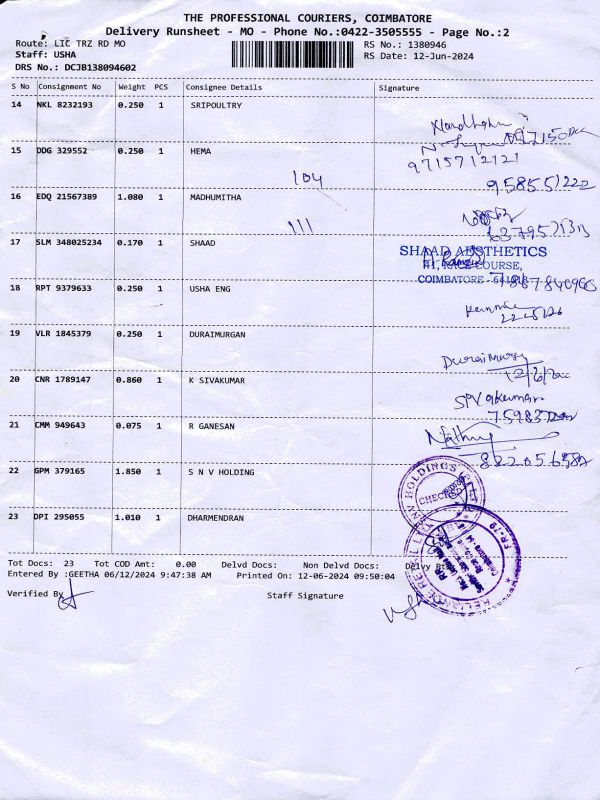 THE PROFESSIONAL COURIERS, COIMBATORE
Delivery Runsheet - MO - Phone No.:0422-3505555 - Page No.:2
Route: LIC TRZ RD MO
RS No.: 1380946
Staff: USHA
RS Date: 12-Jun-2024
DRS No.: DCJB138094602
S No Consignment No Weight PCS Consignee Details Signature
14 NKL 8232193 0.250 1 SRIPOULTRY
15 DDG 329552 0.250 1 HEMA
9715712121
104
16 EDQ 21567389 1.080 1 MADHUMITHA
111
17 SLM 348025234 0.170 1 SHAAD
SHAAD AESTHETICS
41, RACE COURSE,
COIMBATORE
18 RPT 9379633 0.250 1 USHA ENG
19 VLR 1845379 0.250 1 DURAIMURGAN
20 CNR 1789147 0.860 1 K SIVAKUMAR
21 CMM 949643 0.075 1 R GANESAN
22 GPM 379165 1.850 1 S N V HOLDING
NV HOLDINGS
CHECKED
23 DPI 295055 1.010 1 DHARMENDRAN
RELIANCE RETAIL LTD
FR-79
Tot Docs: 23 Tot COD Amt: 0.00 Delvd Docs: Non Delvd Docs: Delvy
Entered By :GEETHA 06/12/2024 9:47:38 AM Printed On: 12-06-2024 09:50:04
Verified By Staff Signature